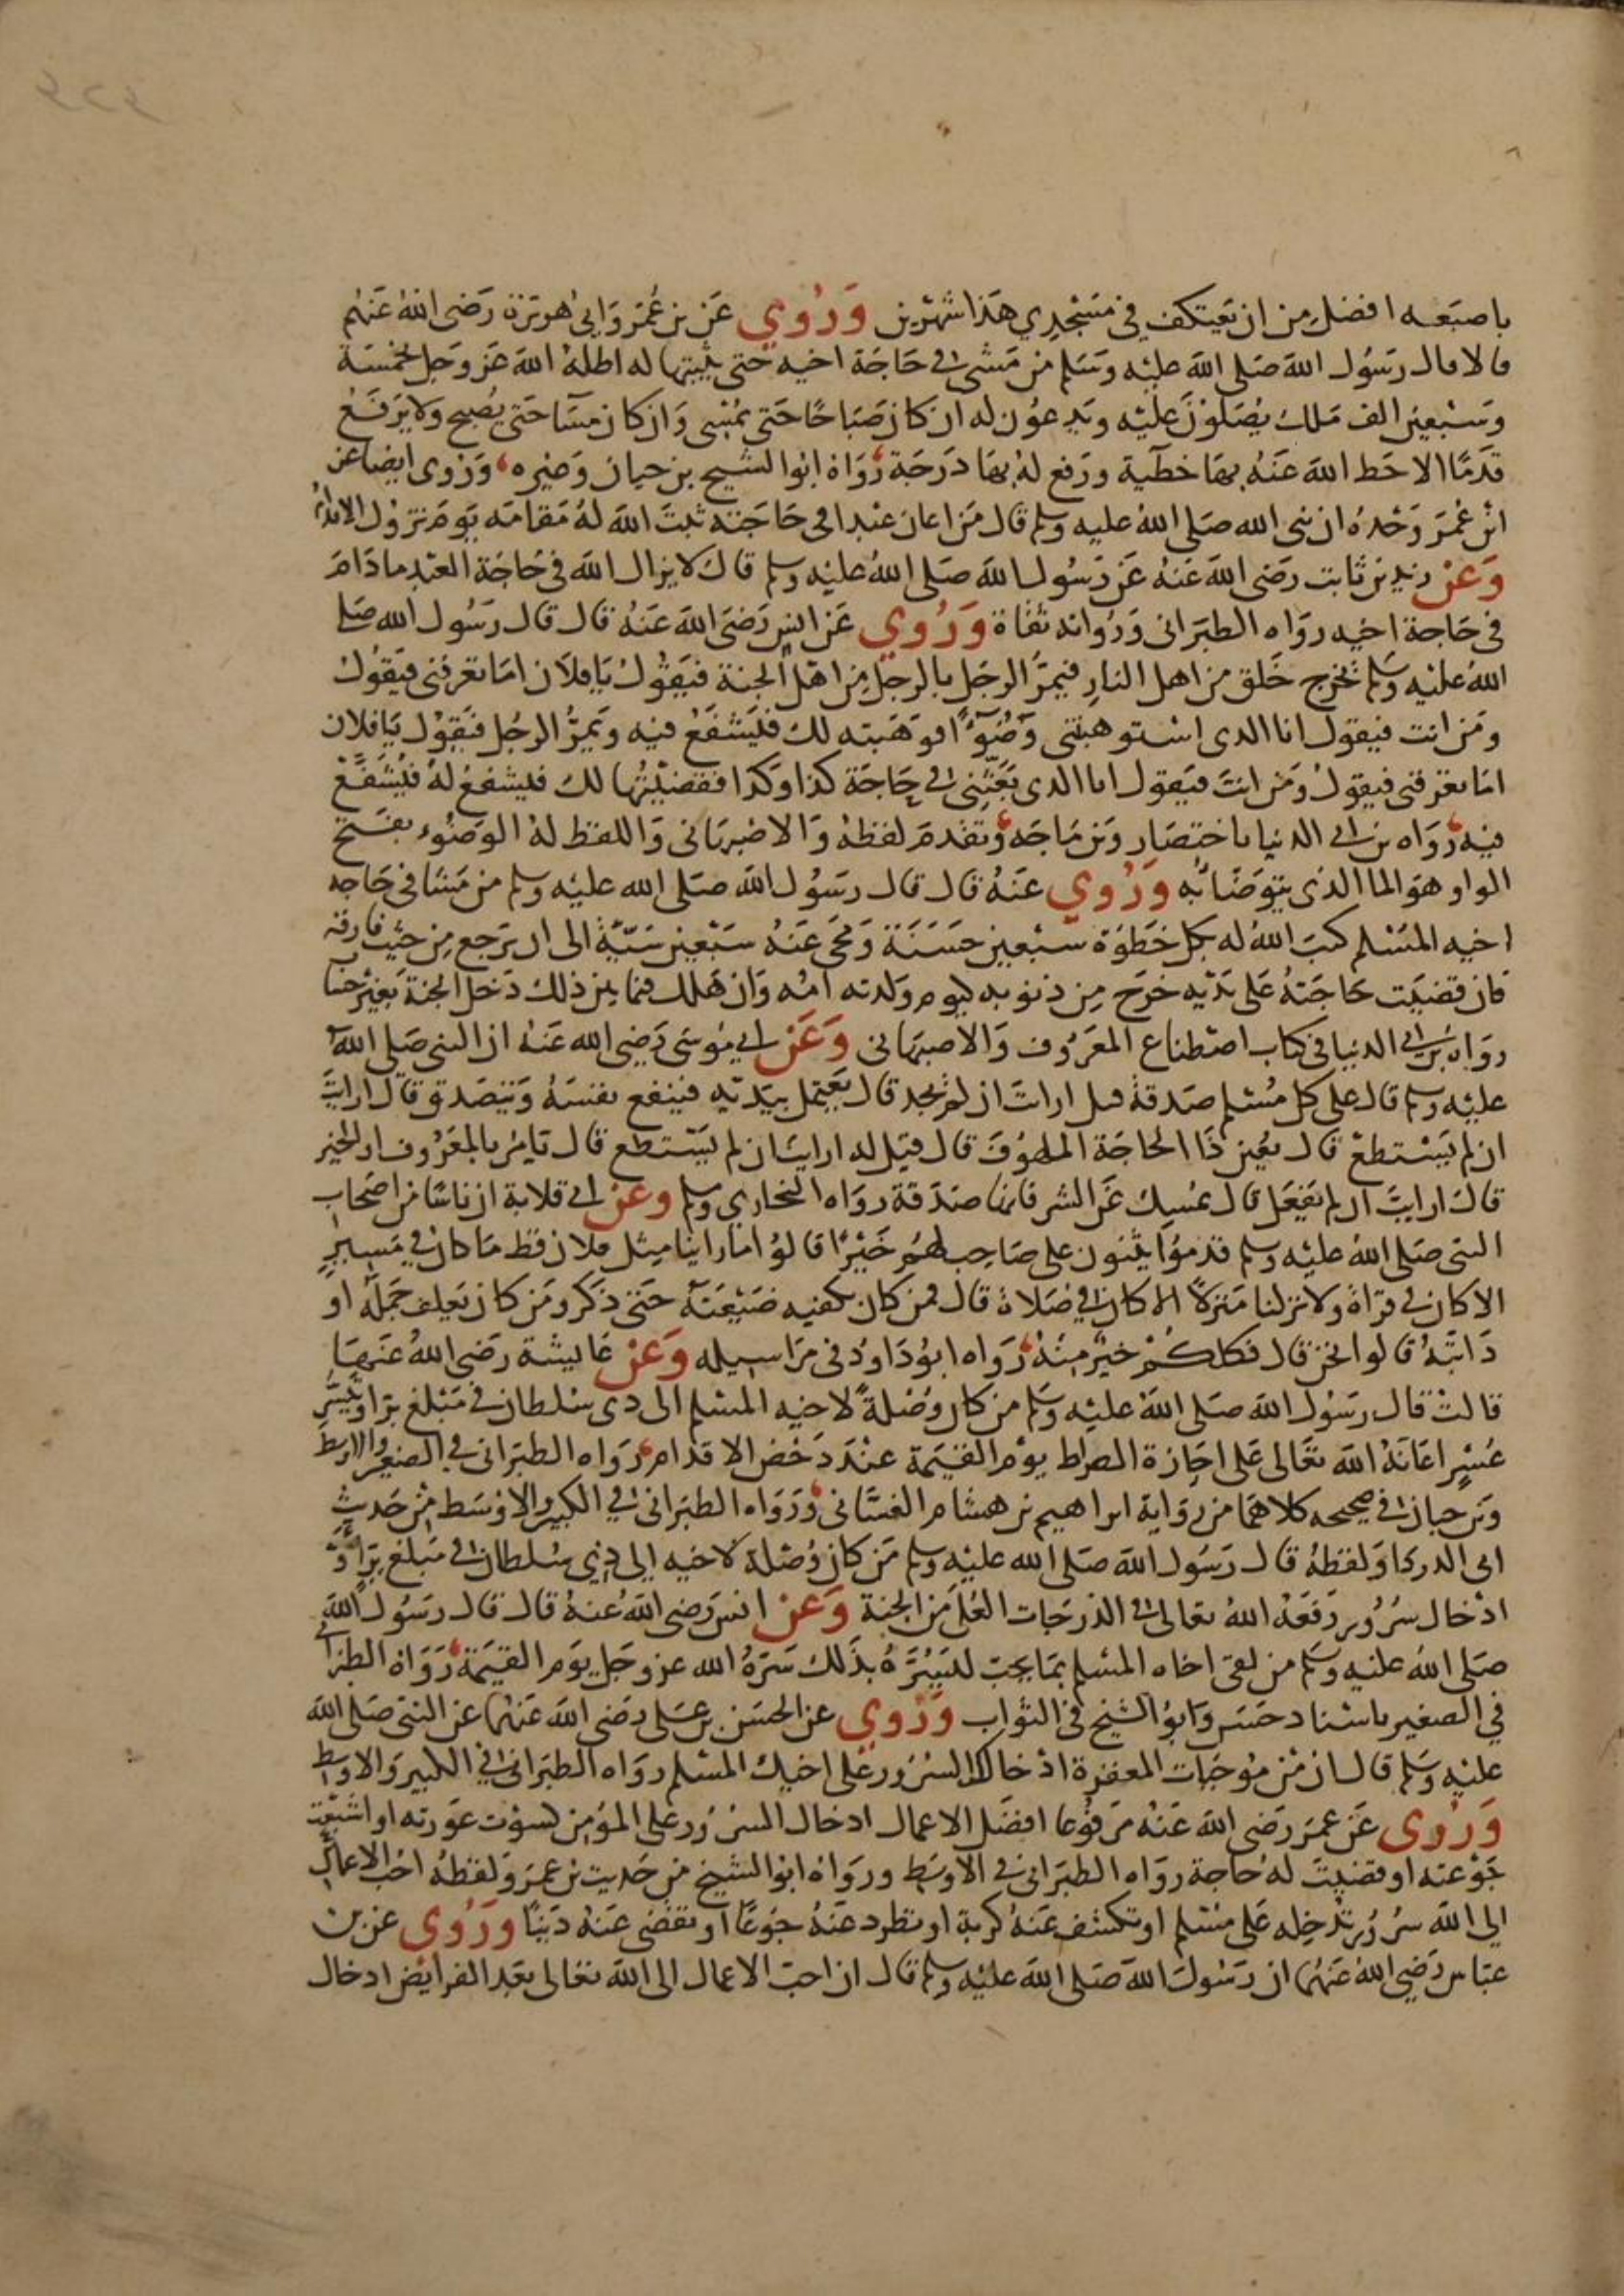 باصبعه افضل من ان يعتكف في مسجدي هذا شهرين وروي عن بن عمر وابي هريرة رضى الله عنهم
قالا قال رسول الله صلى الله عليه وسلم من مشى في حاجة اخيه حتى يثبتها له اظله الله عز وجل بخمسة
وسبعين الف ملك يصلون عليه ويدعون له ان كان صباحا حتى يمسى وان كان مسآ حتى يصبح ولا يرفع
قدما الا حط الله عنه بها خطية ورفع له بها درجة رواه ابوا الشيخ بن حيان وغيره وروى ايضا عن
ابن عمر وحده ان نبى الله صلى الله عليه وسلم قال من اعان عبدا في حاجته ثبت الله له مقامه يوم تزول الاقدام
وعن زيد بن ثابت رضى الله عنه عن رسول الله صلى الله عليه وسلم قال لا يزال الله في حاجة العبد ما دام
في حاجة اخيه رواه الطبرانى ورواته ثقاة وروي عن انس رضى الله عنه قال قال رسول الله صلى
الله عليه وسلم تخرج خلق من اهل النار فيمر الرجل بالرجل من اهل الجنة فيقول يا فلان اما تعرفنى فيقول
ومن انت فيقول انا الدى استوهبتنى وضوءا فوهبته لك فيشفع فيه ويمر الرجل فيقول يا فلان
اما تعرفنى فيقول ومن انت فيقول انا الدى بعثتنى في حاجة كذا وكذا فقضيتها لك فيشفع له فيشفع
فيه رواه بن ابي الدنيا باختصار وبن ماجه وتقدم لفظه والاصبهانى واللفظ له الوضوء بفتح
الواو هو الما الذى يتوضا به وروي عنه قال قال رسول الله صلى الله عليه وسلم من مشا في حاجه
اخيه المسلم كتب الله له بكل خطوة سبعين حسنة ومحى عنه سبعين سيئة الى ان يرجع من حيث فارقه
فان قضيت حاجته على يديه خرج من ذنوبه كيوم ولدته امه وان هلك فيما بين ذلك دخل الجنة بغير حساب
رواه بن ابي الدنيا في كتاب اصطناع المعروف والاصبهانى وعن ابي موسى رضي الله عنه ان النبى صلى الله
عليه وسلم قال على كل مسلم صدقة قيل ارايت ان لم يجد قال يعتمل بيديه فينفع نفسه ويتصدق قال ارايت
ان لم يستطع قال يعين ذا الحاجة الملهوف قال قيل له ارايت ان لم يستطع قال يامر بالمعروف او الخير
قال ارايت ان لم يفعل قال يمسك عن الشر فانها صدقة رواه البخاري ومسلم وعن ابي قلابة ان ناسا من اصحاب
النبى صلى الله عليه وسلم قدموا يثنون على صاحب لهم خيرا قالوا ما راينا مثل فلان قط ما كان في مسير
الا كان في قراة ولا نزلنا منزلا الا كان في صلاة قال فمن كان يكفيه ضيعته حتى ذكر ومن كان يعلف جمله او
دابته قالوا نحن قال فكلكم خير منه رواه ابو داود في مراسيله وعن عايشة رضى الله عنها
قالت قال رسول الله صلى الله عليه وسلم من كان وصلة لاخيه المسلم الى دى سلطان في مبلغ بر او تيسير
عسير اعانه الله تعالى على اجازة الصراط يوم القيمة عند دحض الاقدام رواه الطبرانى في الصغير والاوسط
وبن حبان في صحيحه كلاهما من رواية ابراهيم بن هشام الغسانى ورواه الطبرانى في الكبير والاوسط من حديث
ابى الدردا ولفظه قال رسول الله صلى الله عليه وسلم من كان وصلة لاخيه الى ذي سلطان في مبلغ بر او
ادخال سرور رفعه الله تعالى في الدرجات العلى من الجنة وعن انس رضى الله عنه قال قال رسول الله
صلى الله عليه وسلم من لقى اخاه المسلم بما يحب ليسره بذلك سره الله عز وجل يوم القيمة رواه الطبرانى
في الصغير باسناد حسن وابو الشيخ في الثواب وروي عن الحسن بن على رضى الله عنهما عن النبى صلى الله
عليه وسلم قال ان من موجبات المغفرة ادخالك السرور على اخيك المسلم رواه الطبرانى في الكبير والاوسط
وروى عن عمر رضى الله عنه مرفوعا افضل الاعمال ادخال السرور على المؤمن كسوت عورته او اشبعت
جوعته او قضيت له حاجة رواه الطبرانى في الاوسط ورواه ابوا الشيخ من حديث بن عمر ولفظه احب الاعمال
الى الله سرور تدخله على مسلم او تكشف عنه كربة او تطرد عنه جوعا او تقضى عنه دينا وروي عن بن
عباس رضي الله عنهما ان رسول الله صلى الله عليه وسلم قال ان احب الاعمال الى الله تعالى بعد الفرايض ادخال